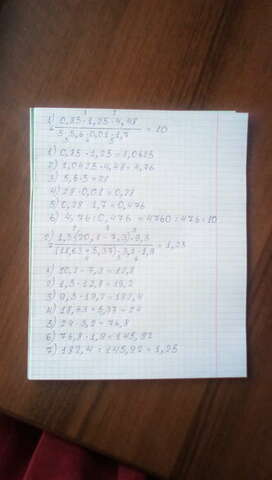 1) 0,85 · 1,25 · 4,48
5 · 5,6 · 0,01 · 1,7 = 10
1) 0,85 · 1,25 = 1,0625
2) 1,0625 · 4,48 = 4,76
3) 5,6 · 5 = 28
4) 28 · 0,01 = 0,28
5) 0,28 · 1,7 = 0,476
6) 4,76 : 0,476 = 4760 : 476 = 10
2) 1,5 · (20,1 - 7,3) · 9,5
(18,63 + 5,37) · 3,2 · 1,9 = 1,25
1) 20,1 - 7,3 = 12,8
2) 1,5 · 12,8 = 19,2
3) 9,5 · 19,2 = 182,4
4) 18,63 + 5,37 = 24
5) 24 · 3,2 = 76,8
6) 76,8 · 1,9 = 145,92
7) 182,4 : 145,92 = 1,25